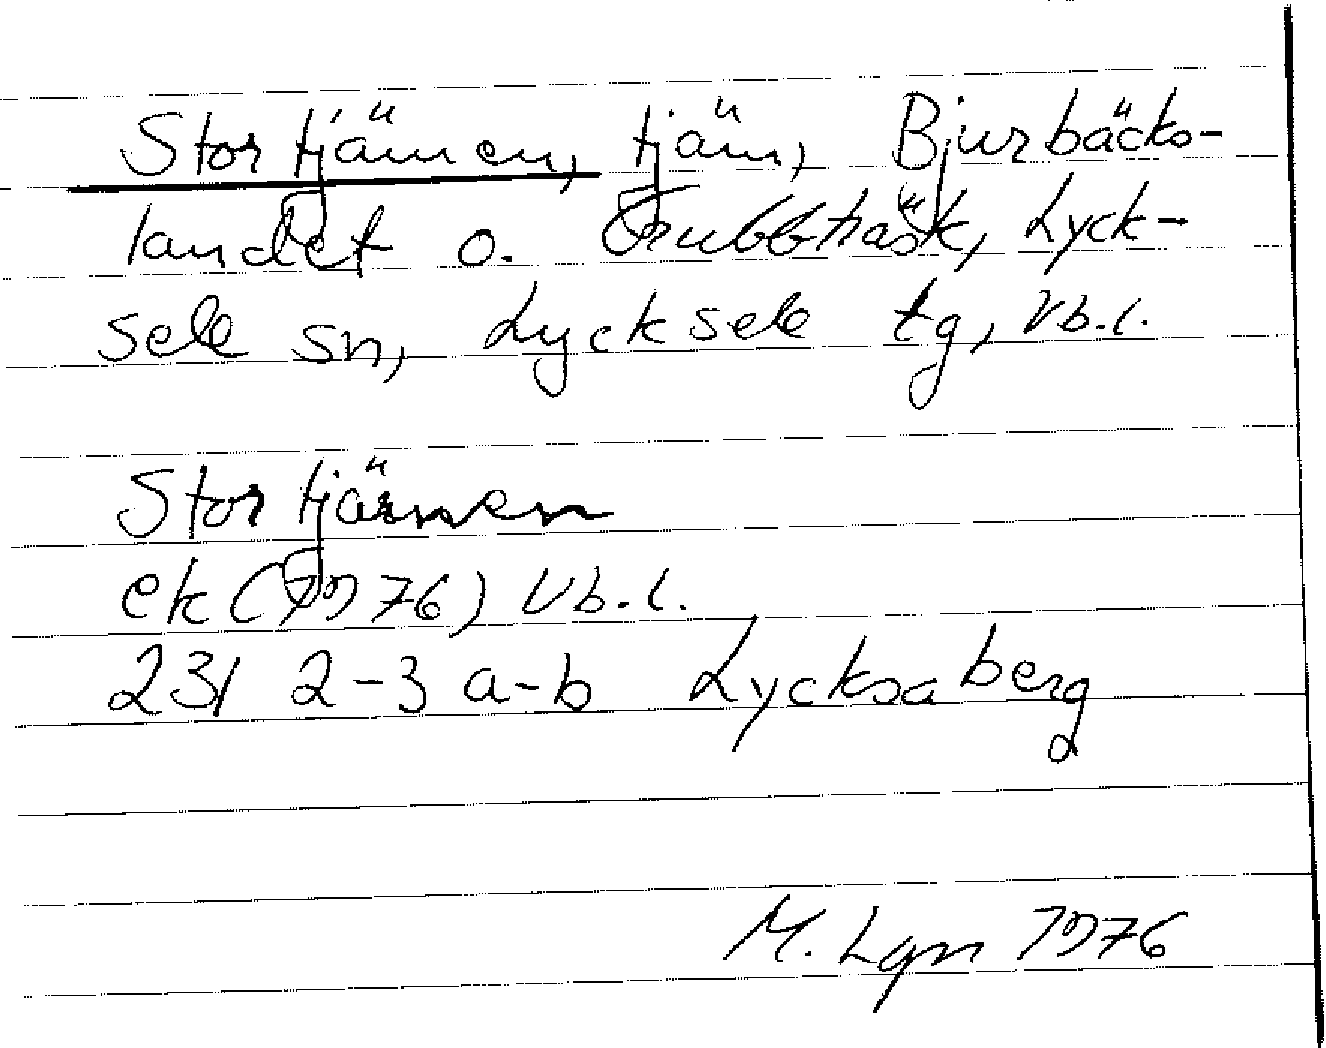 Stortjärnen, tjärn, Bjurbäcks-
landet o. Grubbträsk, Lyck-
sele sn, Lycksele tg, Vb.l.
Stortjärnen
ek (1976) Vb.l.
23I 2-3 a-b Lycksaberg
M. Lgn 1976